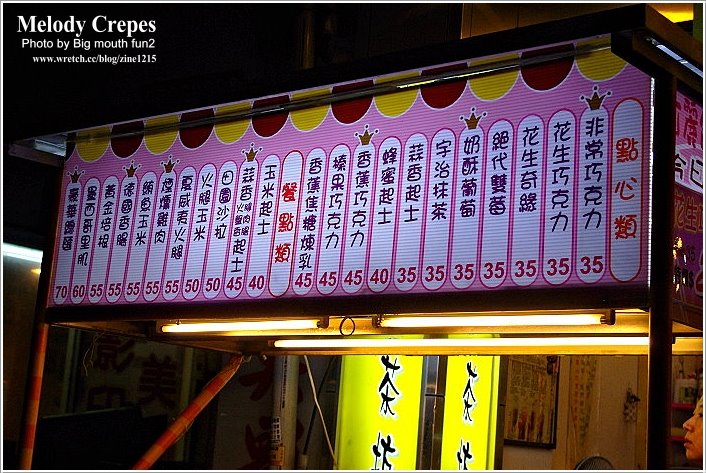 Melody Crepes
Photo by Big mouth fun2
www.wretch.cc/blog/zine1215
點心類
非常巧克力 35
花生巧克力 35
花生奇緣 35
絕代雙莓 35
奶酥葡萄 35
宇治抹茶 35
蒜香起士 35
蜂蜜起士 40
香蕉巧克力 45
榛果巧克力 45
香蕉焦糖煉乳 45
餐點類
玉米起士 40
起士 45
田園沙拉 50
火腿玉米 50
夏威夷火腿 50
煙燻雞肉 55
鮪魚玉米 55
德國香腸 55
黃金培根 55
墨西哥里肌 60
豪華霸匯 70
今日
美
茶
茶